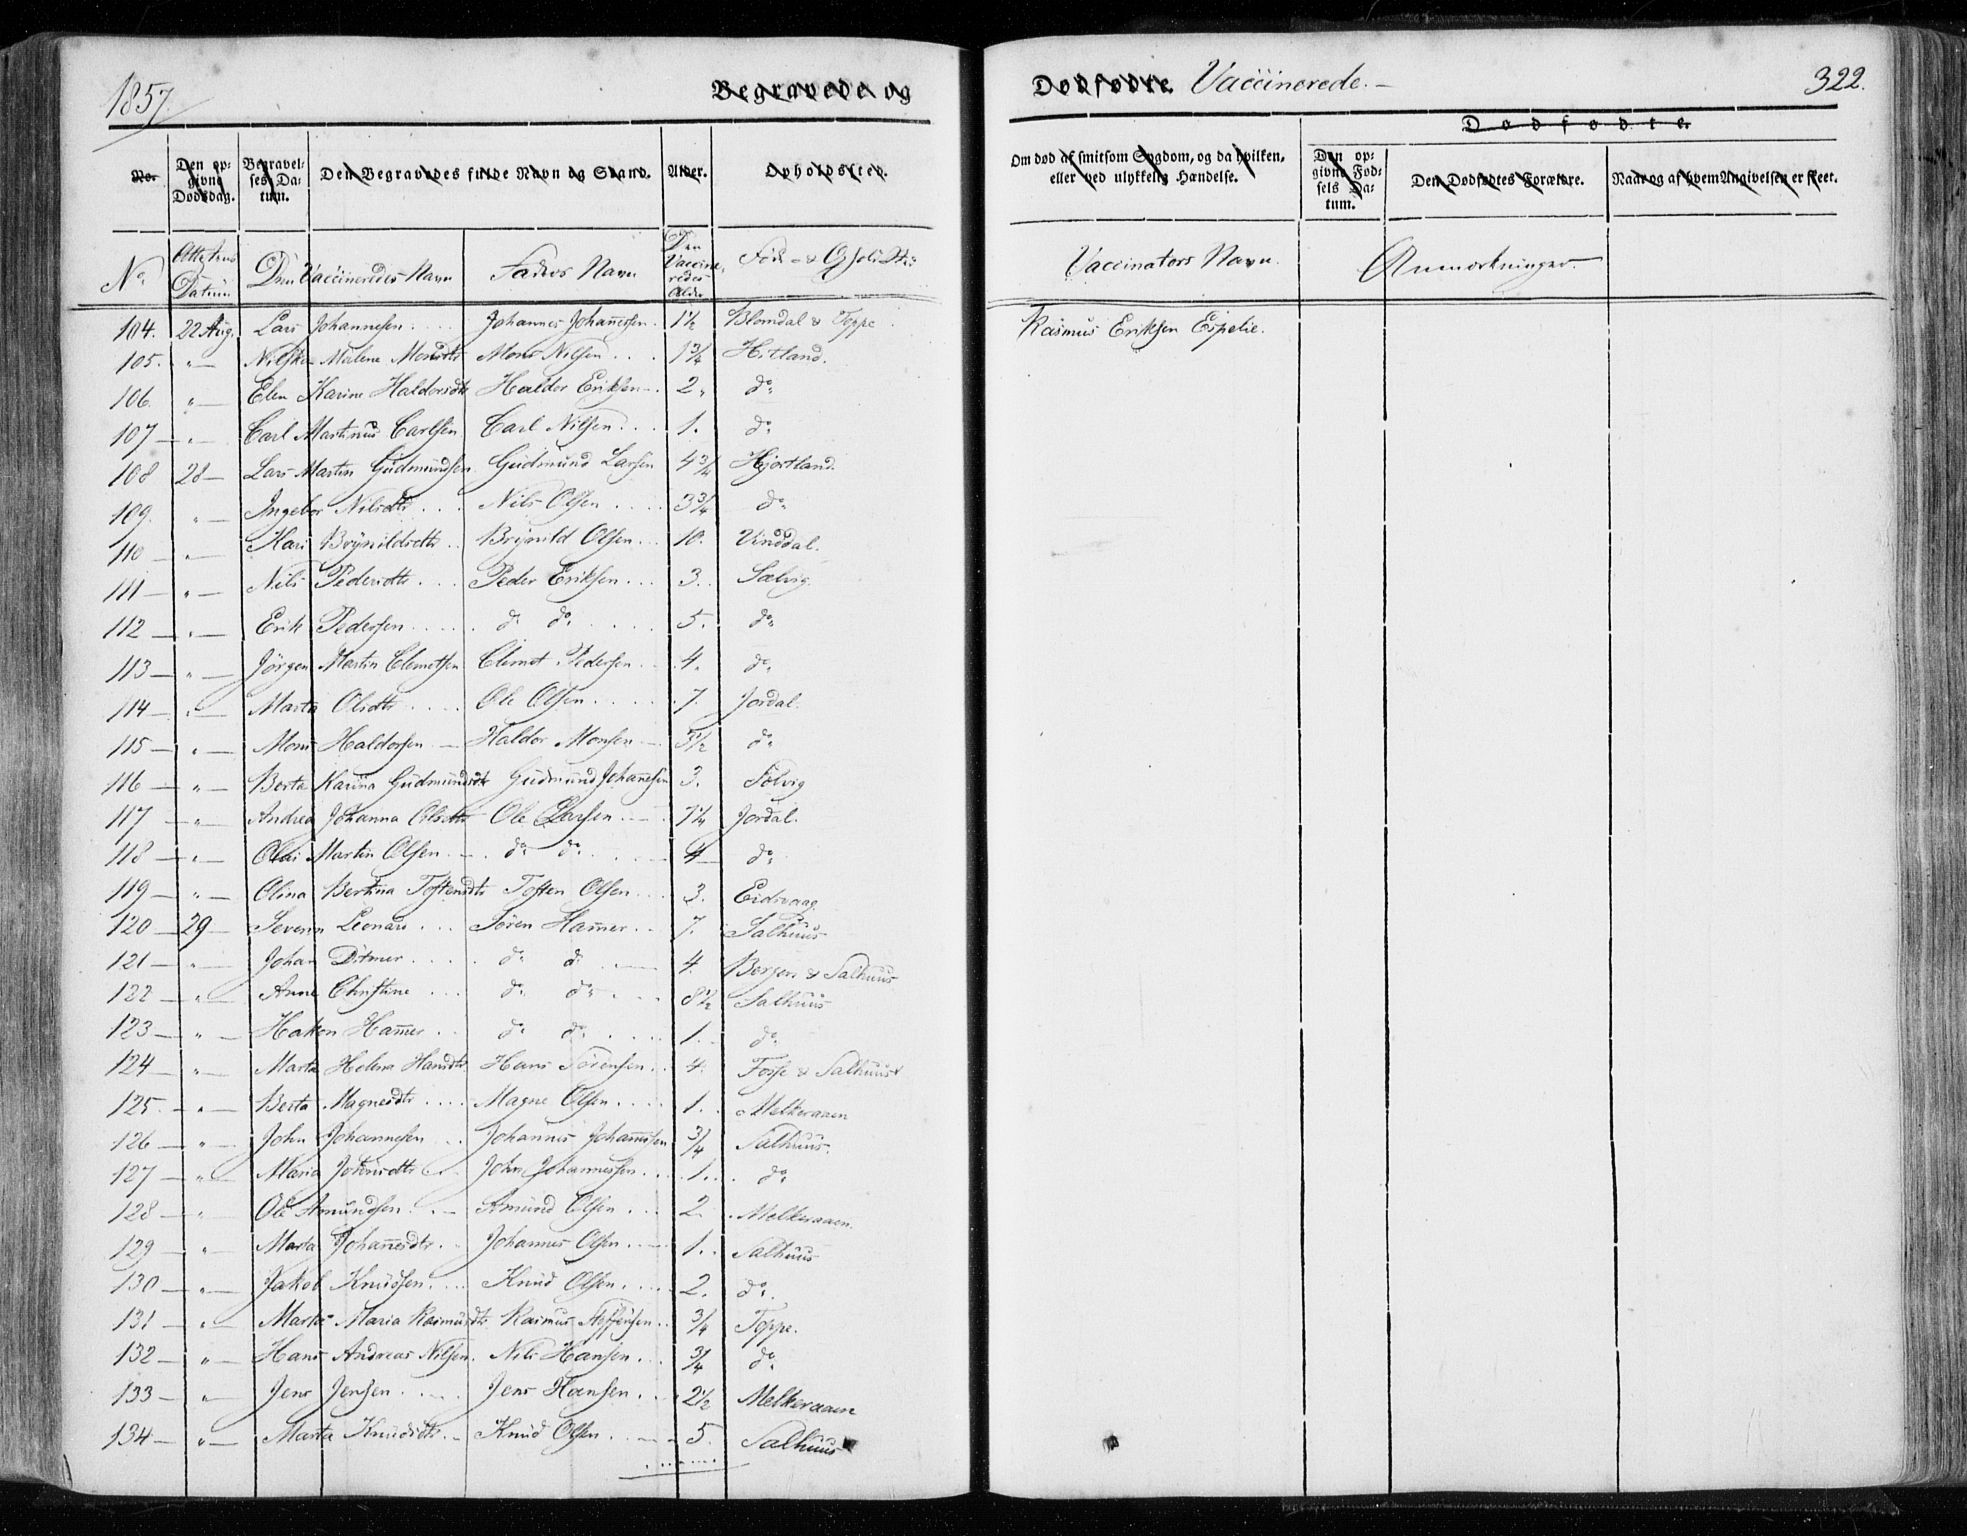 1857. Begravede og Dødfødte. Vaccinerede. 322.
Dødfødte.
No. Den opgivne Dødsdag. Begravelses Datum. Den Begravedes fulde Navn og Stand. Alder. Opholdssted. Om død af smitsom Sygdom, og da hvilken, eller ved ulykkelig Hændelse. Den opgivne Fødsels Datum. Den Dødfødtes Forældre. Naar og af hvem Angivelsen er skeet.
No. Attestens Datum Den Vaccineredes Navn Faders Navn Den Vaccineredes Alder Vaccinators Navn. Anmærkninger.
104. 22 Aug. Lars Johannesen Johannes Johannessen 1½ Blomdal & Toppe. Rasmus Eriksen Espelie.
105. " Malene Monsdtr Mons Nilsen 1¾ Hitland.
106. " Elen Karine Haldorsdtr Haldor Eriksen 2 do
107 " Carl Martinus Carlsen Carl Nilsen 1. do
108 28 Lars Martin Gudmundsen Gudmund Larsen 4¾ Hjortland.
109. " Ingebor Nilsdtr Nils Olsen 3¾ do
110 " Kari Brynildsdtr Brynild Olsen 10. Vinddal.
111 " Nils Pedersdtr Peder Eriksen 3. Sælvig.
112 " Erik Pedersen do do 5. do
113 " Jörgen Martin Clemetsen Clemet Pedersen 4. do
114 " Marta Olsdtr Ole Olsen 7. Jordal.
115 " Mons Haldorsen Haldor Monsen 3½ do
116 " Berta Karina Gudmundsdtr Gudmund Johannesen 3. Sölvig
117 " Andrea Johanna Olsdtr Ole Larsen 1¼ Jordal.
118 " Olai Martin Olsen do do 4 do
119 " Olina Bertina Tostensdtr Tosten Olsen 3. Eidsvaag.
120 29 Severin Leonard Sören Hammer 7. Salhuus
121 " Johan Ditmer do do 4. Bergen & Salhuus
122 " Anne Christine do do 8½ Salhuus
123 " Hakon Hammer do do 1. do
124 " Marta Helena Hansdtr Hans Sörensen 4. Fosse & Salhuus
125. " Berta Magnesdtr Magne Olsen 1. Melkeraaen
126 " John Johannesen Johannes Johannesen ¾ Salhuus.
127 " Maria Johnsdtr John Johannessen 1. do
128 " Ole Amundsen Amund Olsen 2. Melkeraaen.
129 " Marta Johannesdtr Johannes Olsen 1. Salhuus
130 " Jakob Knudsen Knud Olsen 2. do
131 " Marta Maria Rasmusdtr Rasmus Steffensen ¾ Toppe.
132 " Hans Andreas Nilsen. Nils Hansen ¾ do
133 " Jens Jensen Jens Hansen 2½ Melkeraaen
134 " Marta Knudsdtr Knud Olsen 5. Salhuus